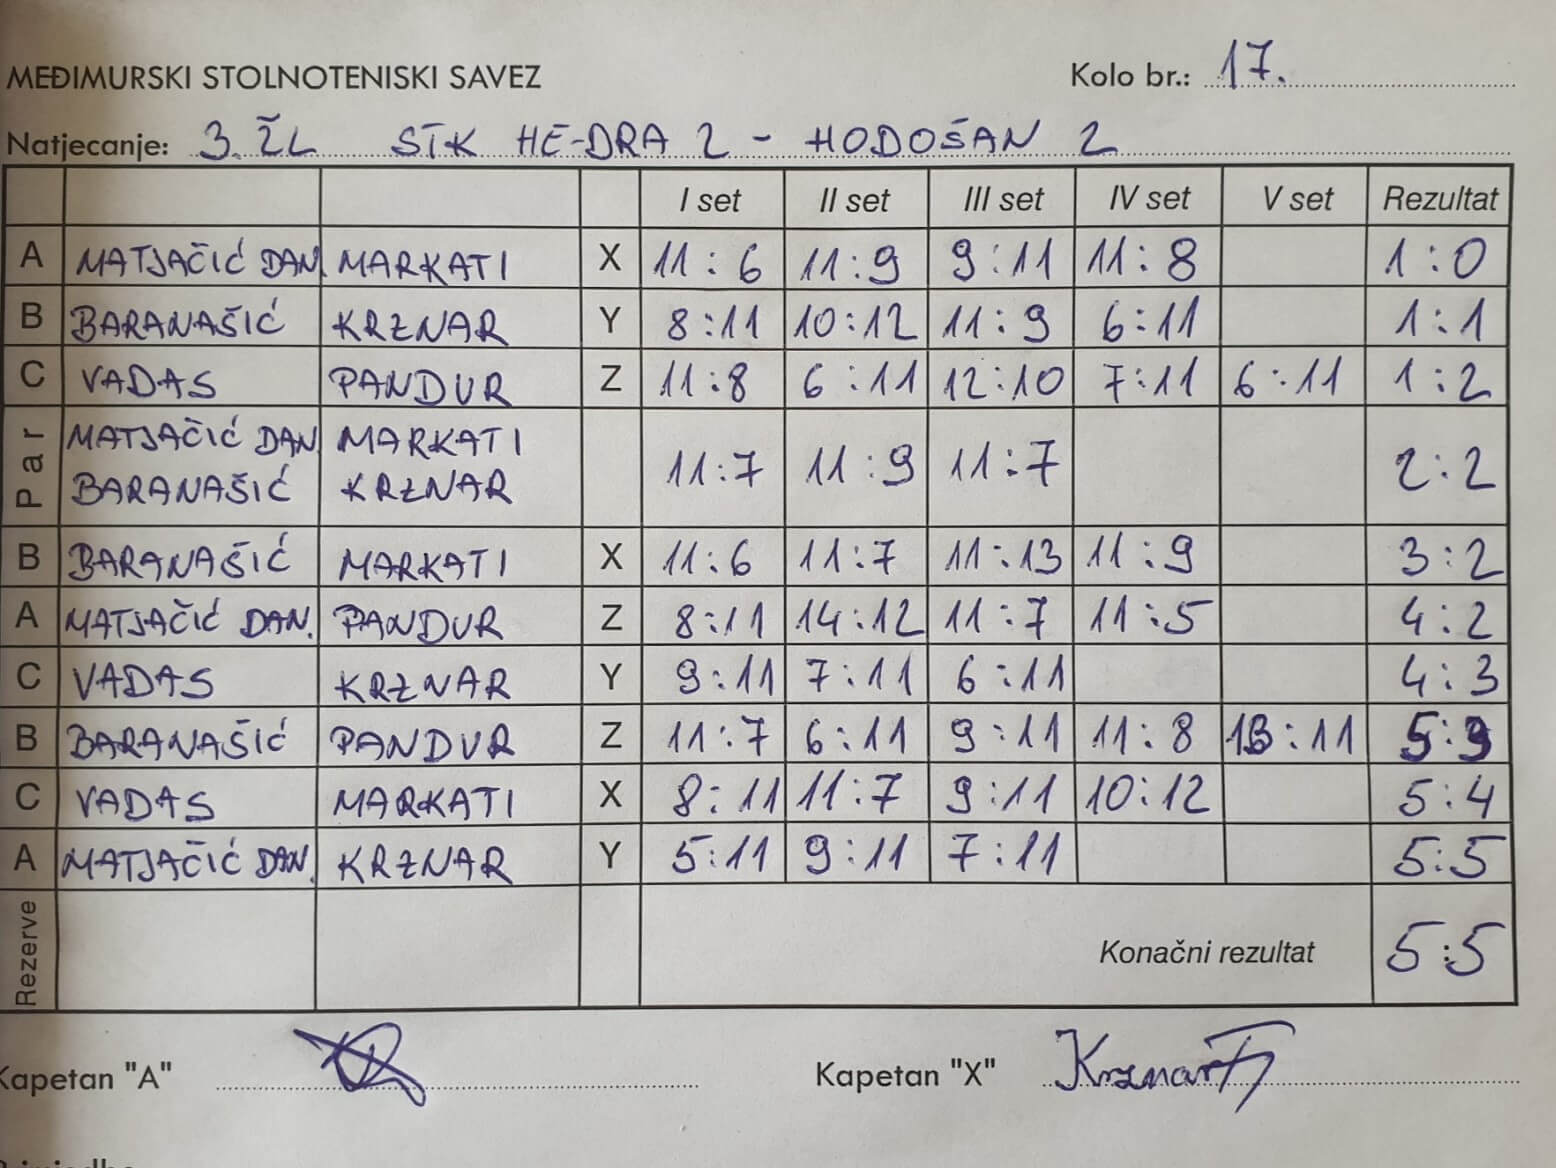 MEĐIMURSKI STOLNOTENISKI SAVEZ Kolo br.: 17.
Natjecanje: 3. ŽL STK HE-DRA 2 - HODOŠAN 2
I set II set III set IV set V set Rezultat
A MATJAČIĆ DAN. MARKATI X 11:6 11:9 9:11 11:8 1:0
B BARANAŠIĆ KRZNAR Y 8:11 10:12 11:9 6:11 1:1
C VADAS PANDUR Z 11:8 6:11 12:10 7:11 6:11 1:2
Par MATJAČIĆ DAN. MARKATI 11:7 11:9 11:7 2:2
BARANAŠIĆ KRZNAR
B BARANAŠIĆ MARKATI X 11:6 11:7 11:13 11:9 3:2
A MATJAČIĆ DAN. PANDUR Z 8:11 14:12 11:7 11:5 4:2
C VADAS KRZNAR Y 9:11 7:11 6:11 4:3
B BARANAŠIĆ PANDUR Z 11:7 6:11 9:11 11:8 13:11 5:3
C VADAS MARKATI X 8:11 11:7 9:11 10:12 5:4
A MATJAČIĆ DAN. KRZNAR Y 5:11 9:11 7:11 5:5
Rezerve Konačni rezultat 5:5
Kapetan "A" Kapetan "X" Krznar